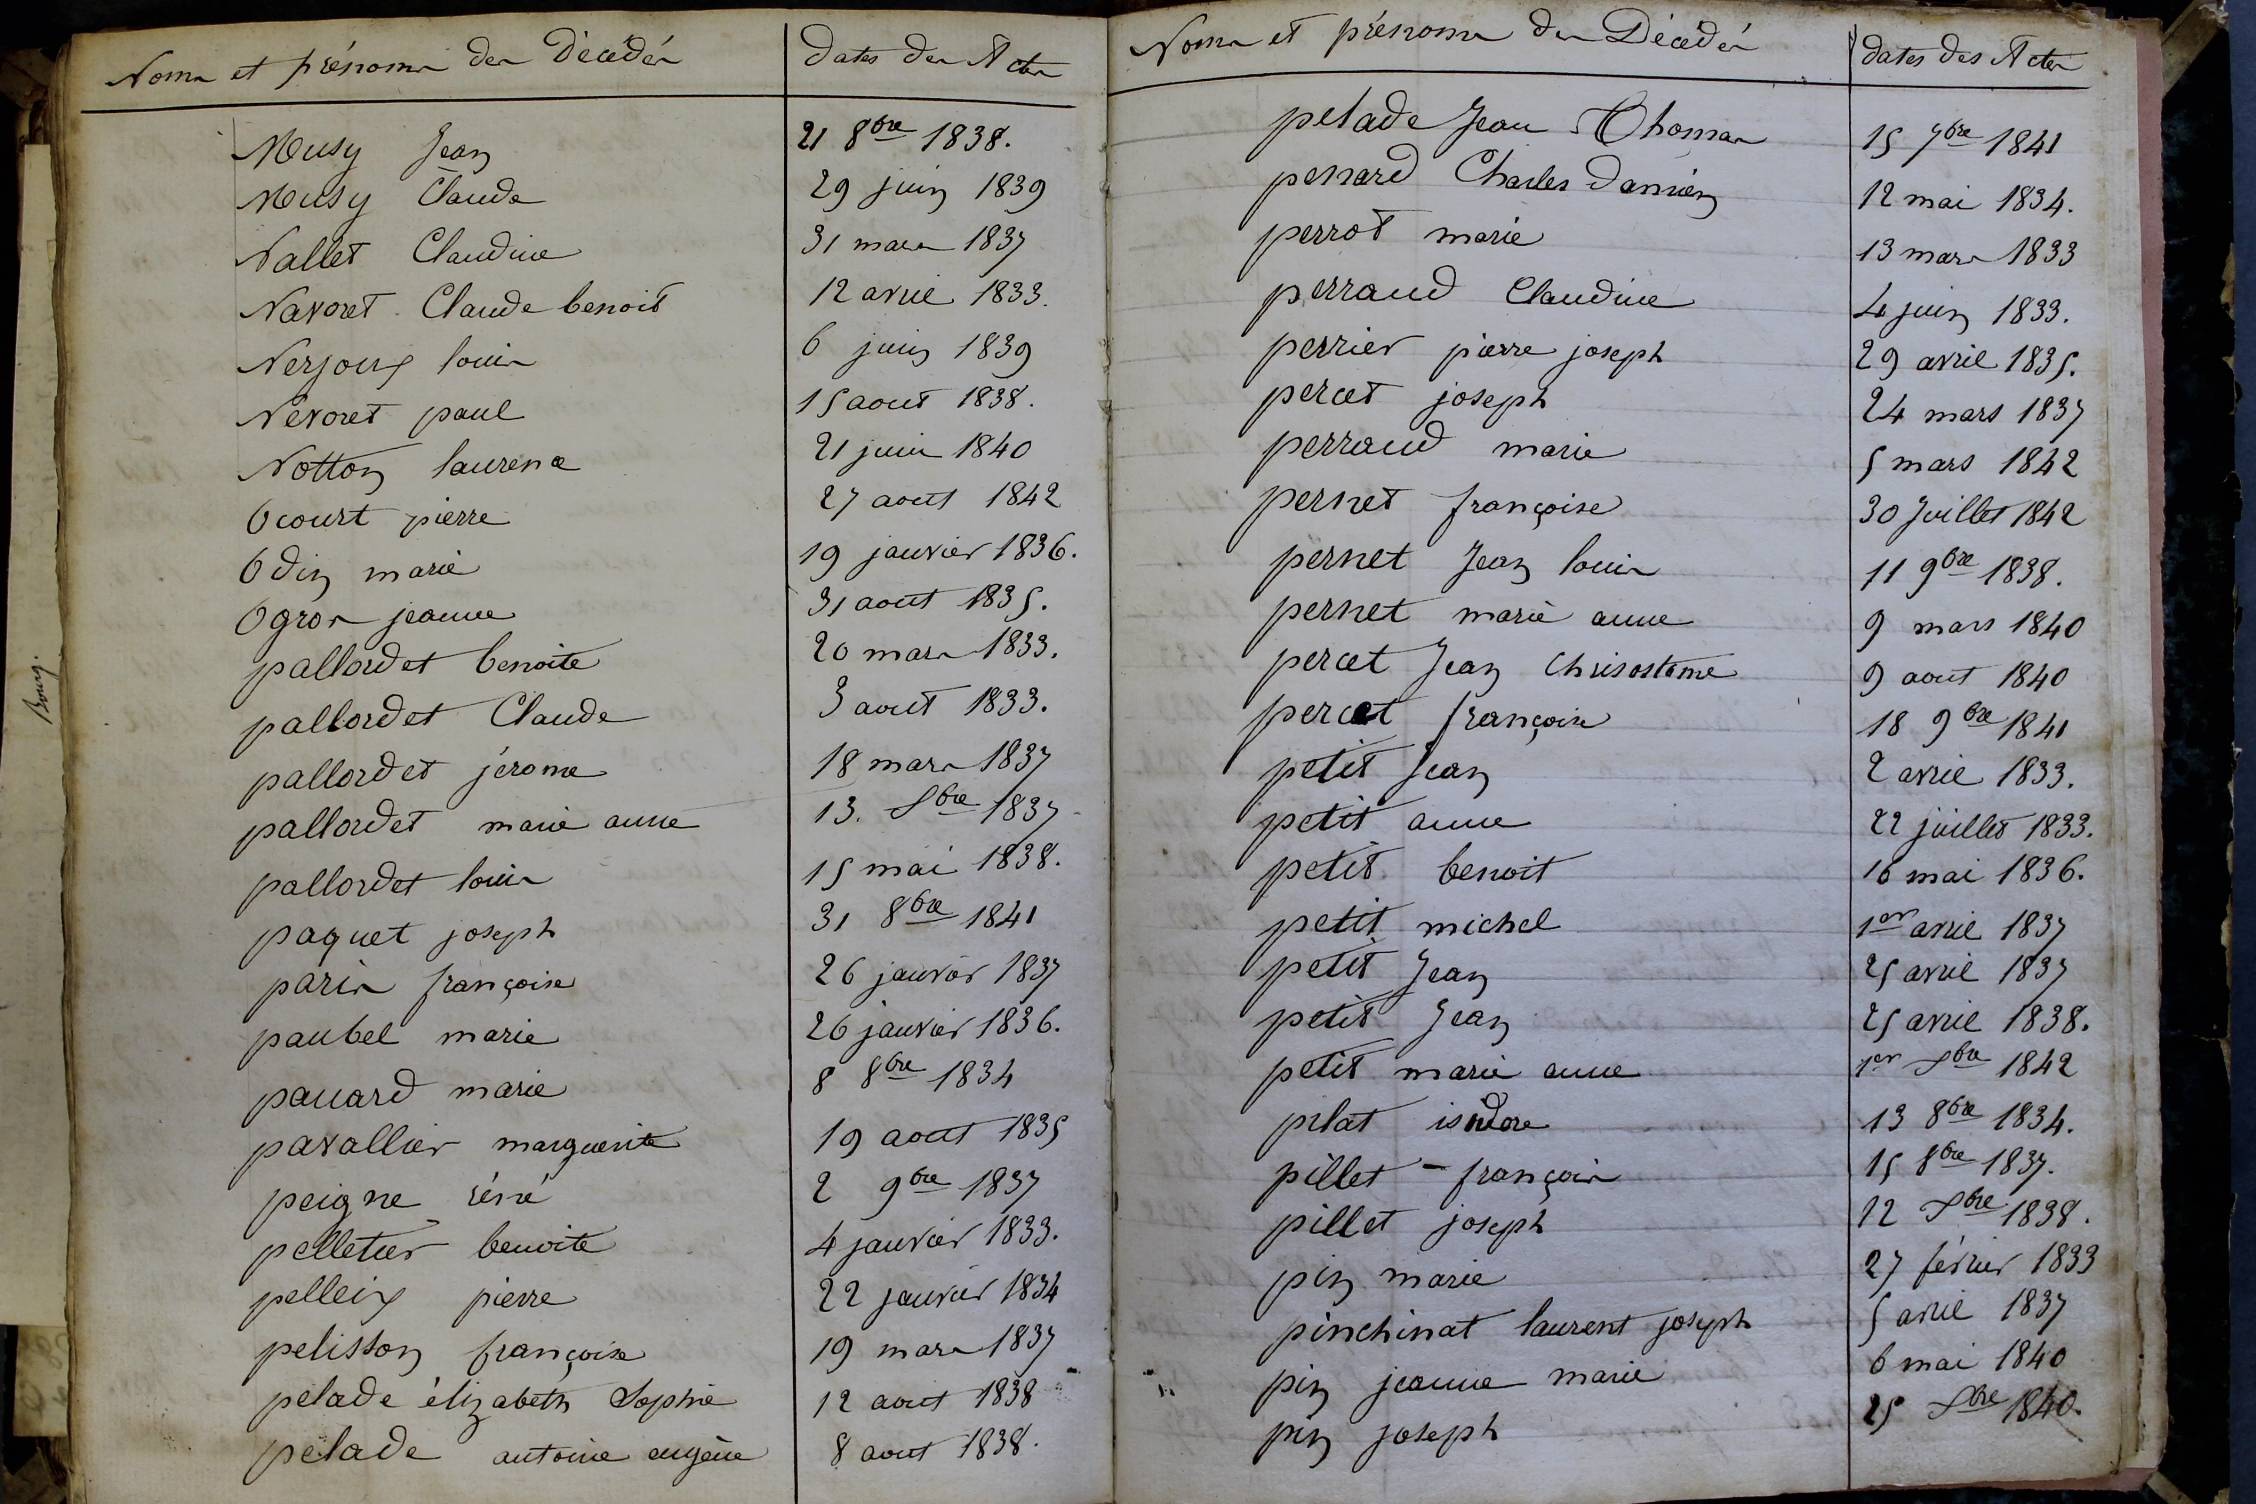 Noms et prénoms des Décédés dates des Actes
Musy Jean 21 8bre 1838.
Musy Claude 29 juin 1839
Nallet Claudine 31 mars 1837
Navoret Claude benoit 12 avril 1833.
Nerjoux louis 6 juin 1839
Névoret paul 15 aout 1838.
Notton laurence 21 juin 1840
Ocourt pierre 27 aout 1842
Odin marie 19 janvier 1836.
Ogros jeanne 31 aout 1835.
pallordet benoite 20 mars 1833.
pallordet Claude 3 aout 1833.
pallordet jérome 18 mars 1837
pallordet marie anne 13. Xbre 1837
pallordet louis 15 mai 1838.
paquet joseph 31 8bre 1841
paris françoise 26 janvier 1837
paubel marie 26 janvier 1836.
pauard marie 8 8bre 1834
pavallier marguerite 19 aout 1835
peigne réné 2 9bre 1837
pelletier benoite 4 janvier 1833.
pelleix pierre 22 janvier 1834
pelisson françoise 19 mars 1837
pelade élizabeth Sophie 12 aout 1838
pelade antoine eugène 8 aout 1838.
Bourg.
Noms et prénoms des Décédés dates des Actes
pelade Jean Thomas 15 7bre 1841
penard Charles Damien 12 mai 1834.
perrot marie 13 mars 1833
perraud Claudine 4 juin 1833.
perrier pierre joseph 29 avril 1835.
percet joseph 24 mars 1837
perraud marie 5 mars 1842
pernet françoise 30 Juillet 1842
pernet Jean louis 11 9bre 1838.
pernet marie anne 9 mars 1840
percet Jean Chrisostome 9 aout 1840
percet françoise 18 9bre 1841
petit Jean 2 avril 1833.
petit anne 22 juillet 1833.
petit benoit 16 mai 1836.
petit michel 1er avril 1837
petit Jean 25 avril 1837
petit Jean 25 avril 1838.
petit marie anne 1er Xbre 1842
pilat isidore 13 8bre 1834.
pillet - françois 15 8bre 1837.
pillet joseph 12 Xbre 1838.
pin marie 27 février 1833
pinchinat laurent joseph 5 avril 1837
pin jeanne marie 6 mai 1840
pin joseph 25 Xbre 1840.